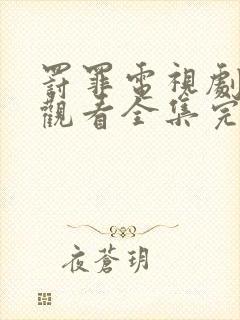 罰罪電視劇
觀看全集完
夜蒼玥